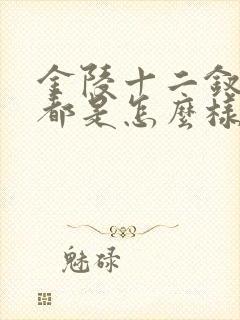 金陵十二釵
都是怎麼樣
魅碌